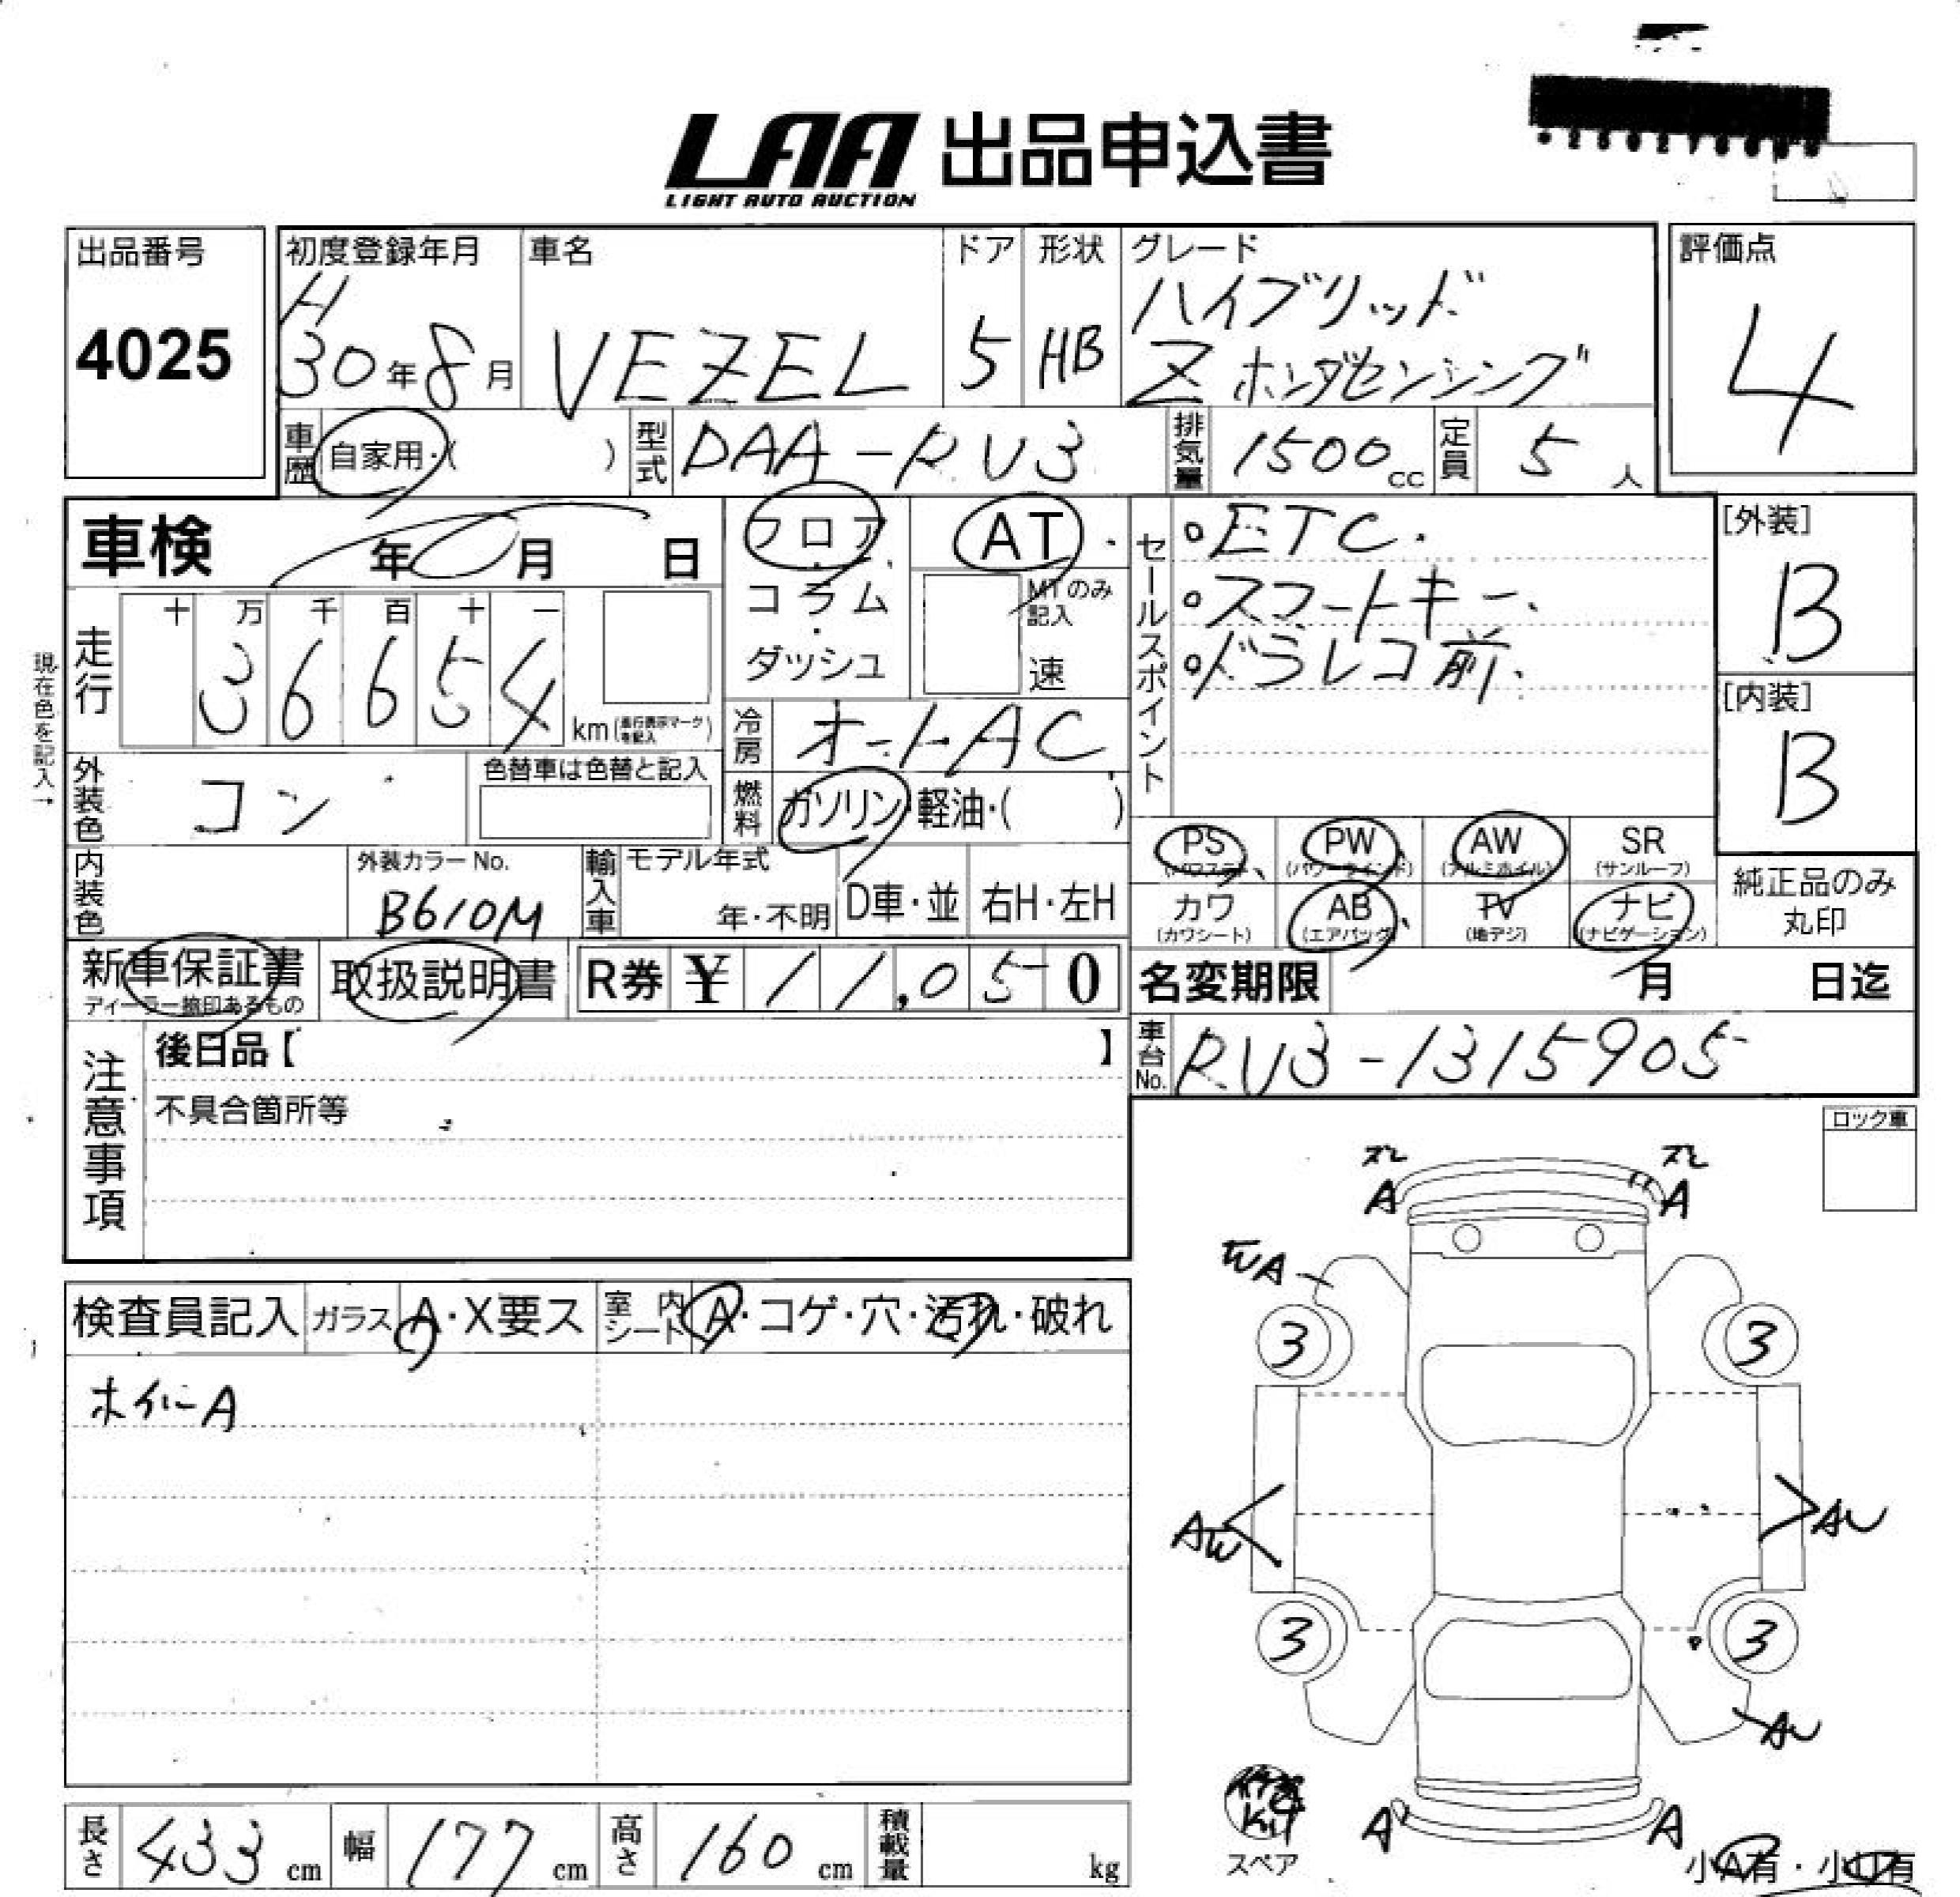 LAA 出品申込書
LIGHT AUTO AUCTION
出品番号
4025
初度登録年月
H
30年8月
車名
VEZEL
ドア
5
形状
HB
グレード
ハイブリッド
Z ホンダセンシング
評価点
4
車歴 自家用・( )
型式 DAA-RV3
排気量 1500cc
定員 5人
車検 年 月 日
フロア・
コラム
・
ダッシュ
AT・
MTのみ
記入
速
セールスポイント
。ETC.
。スマートキー、
。ドラレコ前.
[外装]
B
[内装]
B
現在色を記入→
走行
十 万 千 百 十 一
3 6 6 5 4
km(走行表示マークを記入)
冷房 オートAC
外装色 コン
色替車は色替と記入
燃料 ガソリン・軽油・( )
内装色
外装カラーNo.
B610M
輸入車
モデル年式
年・不明
D車・並
右H・左H
PS
PW
(パワーウインド)
AW
(アルミホイル)
SR
(サンルーフ)
カワ
(カワシート)
AB
(エアバッグ)
TV
(地デジ)
ナビ
(ナビゲーション)
純正品のみ
丸印
新車保証書
ディーラー捺印あるもの
取扱説明書
R券 ¥ 11,050
名変期限 月 日迄
車台No. RV3-1315905
注意事項
後日品【 】
不具合箇所等
ロック車
検査員記入
ガラス A・X要ス
室内シート A・コゲ・穴・汚れ・破れ
ホイルA
ズレ
A
ズレ
A
3
3
AW
AU
3
3
AU
スペア
A
A
小A有・小U有
長さ 433 cm
幅 177 cm
高さ 160 cm
積載量 kg